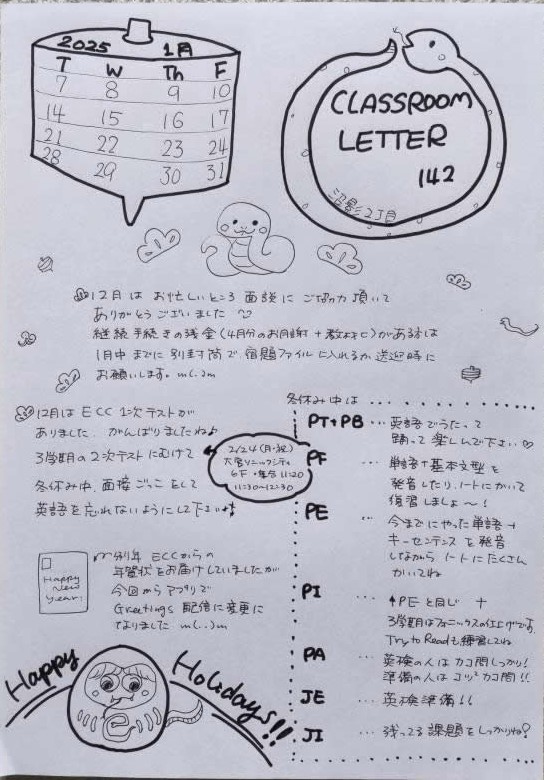 2025 1月
T W Th F
7 8 9 10
14 15 16 17
21 22 23 24
28 29 30 31
CLASSROOM
LETTER
142
沼影2丁目
12月は お忙しいところ 面談に ご協力 頂いて
ありがとうございました
継続手続きの残金(4月分のお月謝+教材に)がある方は
1月中までに 別封筒で 宿題ファイルに入れるか 送迎時に
お願いします。m(..)m
12月は ECC 1次テストが
ありました。がんばりましたね♪
3学期の2次テストにむけて
冬休み中、面接ごっこをして
英語を忘れないようにして下さい
2/24(月・祝)
大宮ソニックシティ
6F・集合 11:20
11:30〜12:30
冬休み中は...
PT+PB ... 英語でうたって
踊って 楽しんで下さい♡
PF ... 単語+基本文型を
発音したり、ノートにかいて
復習しましょ〜!
PE ... 今までにやった単語+
キーセンテンスを発音
しながら ノートにたくさん
かいてね
PI ... ↑PEと同じ +
3学期はフォニックスの仕上げです。
Try to Readも練習してね
PA ... 英検の人は カコ問しっかり!
準備の人は コツ2カコ問!!
JE ... 英検準備!!
JI ... 残ってる課題をしっかりね?
Happy
New
Year!
例年 ECCからの
年賀状をお届けしていましたが
今回から アプリで
Greetings 配信に変更に
なりました m(..)m
Happy Holidays!!
e